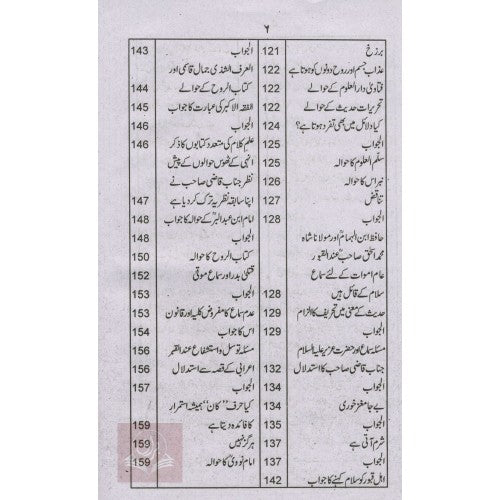 ٦
برزخ 121
عذاب جسم اور روح دونوں کو ہوتا ہے 122
فتاویٰ دارالعلوم کے حوالے 122
تحریرات حدیث کے حوالے 122
کیا دلائل میں بھی تفرد ہوتا ہے؟ 124
الجواب 125
سلم العلوم کا حوالہ 125
نبراس کا حوالہ 126
تناقض 127
الجواب 128
حافظ ابن الہمامؒ اور مولانا شاہ
محمد اسحٰق صاحبؒ عند القبور
عام اموات کے لئے سماع
سلام کے قائل ہیں 128
حدیث کے معنی میں تحریف کا الزام 129
الجواب 129
مسئلہ سماع اور حضرت عزیر علیہ السلام
جناب قاضی صاحب کا استدلال 132
الجواب 134
بے جا مغز خوری 134
الجواب 135
شرم آتی ہے 137
الجواب 137
اہل قبور کو سلام کہنے کا جواب 142
الجواب 143
العرف الشذی جمال قاسمی اور
کتاب الروح کے حوالے 144
الفقہ الاکبر کی عبارت کا جواب 145
الجواب 146
علم کلام کی متعدد کتابوں کا ذکر 146
انہی کے ٹھوس حوالوں کے پیش
نظر جناب قاضی صاحب نے
اپنا سابقہ نظریہ ترک کر دیا ہے 147
امام ابن عبدالبرؒ کے حوالہ کا جواب 148
الجواب 148
کتاب الروح کا حوالہ 150
قتلیٰ بدر اور سماع موتی 152
الجواب 153
عدم سماع کا مفروض کلیہ اور قانون 153
اس کا جواب 154
مسئلہ توسل و استشفاع عند القبر 156
اعرابی کے قصہ سے استدلال 156
الجواب 157
کیا حرف "کان" ہمیشہ استمرار
کا فائدہ دیتا ہے 159
ہرگز نہیں 159
امام نوویؒ کا حوالہ 159